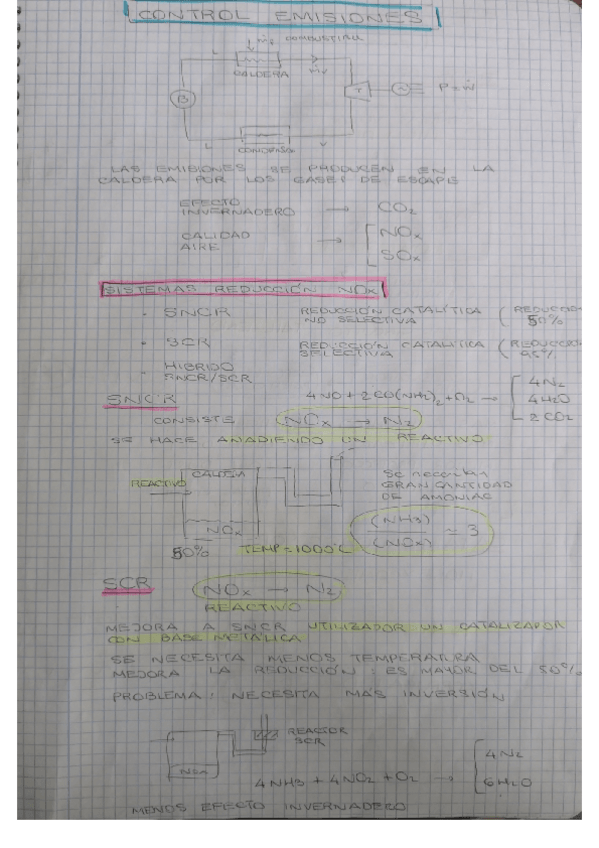 CONTROL EMISIONES
ṁf COMBUSTIBLE
L
CALDERA
ṁv
B
T
P = ẇ
L
V
CONDENSA
LAS EMISIONES SE PRODUCEN EN LA
CALDERA POR LOS GASES DE ESCAPE
EFECTO
INVERNADERO → CO₂
CALIDAD
AIRE → NOx
SOx
SISTEMAS REDUCCIÓN NOx
· SNCR REDUCCIÓN CATALÍTICA ( REDUCCIO
NO SELECTIVA 50%
· SCR REDUCCIÓN CATALITICA ( REDUCCIO
SELECTIVA 95%
· HIBRIDO
SNCR/SCR
SNCR 4NO + 2CO(NH₂)₂ + O₂ → 4N₂
4H₂O
2CO₂
CONSISTE NOx → N₂
SE HACE AÑADIENDO UN REACTIVO
REACTIVO
CALDERA
NOx
50%
TEMP = 1000°C
Se necesitan
GRAN CANTIDAD
DE AMONIAC
(NH3)
(NOx) ≃ 3
SCR NOx → N₂
REACTIVO
MEJORA A SNCR UTILIZADOR UN CATALIZADOR
CON BASE METÁLICA
SE NECESITA MENOS TEMPERATURA
MEJORA LA REDUCCIÓN: ES MAYOR DEL 50%
PROBLEMA: NECESITA MÁS INVERSIÓN
REACTOR
SCR
4NH3 + 4NO₂ + O₂ → 4N₂
6H₂O
MENOS EFECTO INVERNADERO